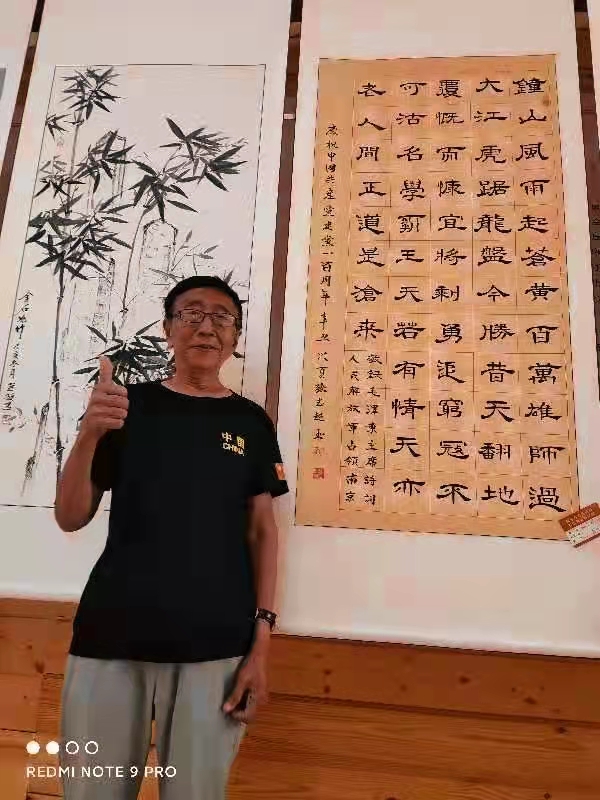 鐘山風雨起蒼黄百萬雄師過
大江虎踞龍盤今勝昔天翻地
覆慨而慷宜將剩勇追窮寇不
可沽名學霸王天若有情天亦
老人間正道是滄桑
敬録毛澤東主席詩詞
人民解放軍占領南京
慶祝中國共産党建党一百周年辛丑
中国
CHINA
REDMI NOTE 9 PRO